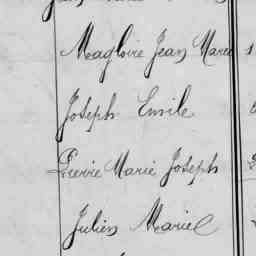 Magloire Jean Marie
Joseph Emile
Pierre Marie Joseph
Julien Marie